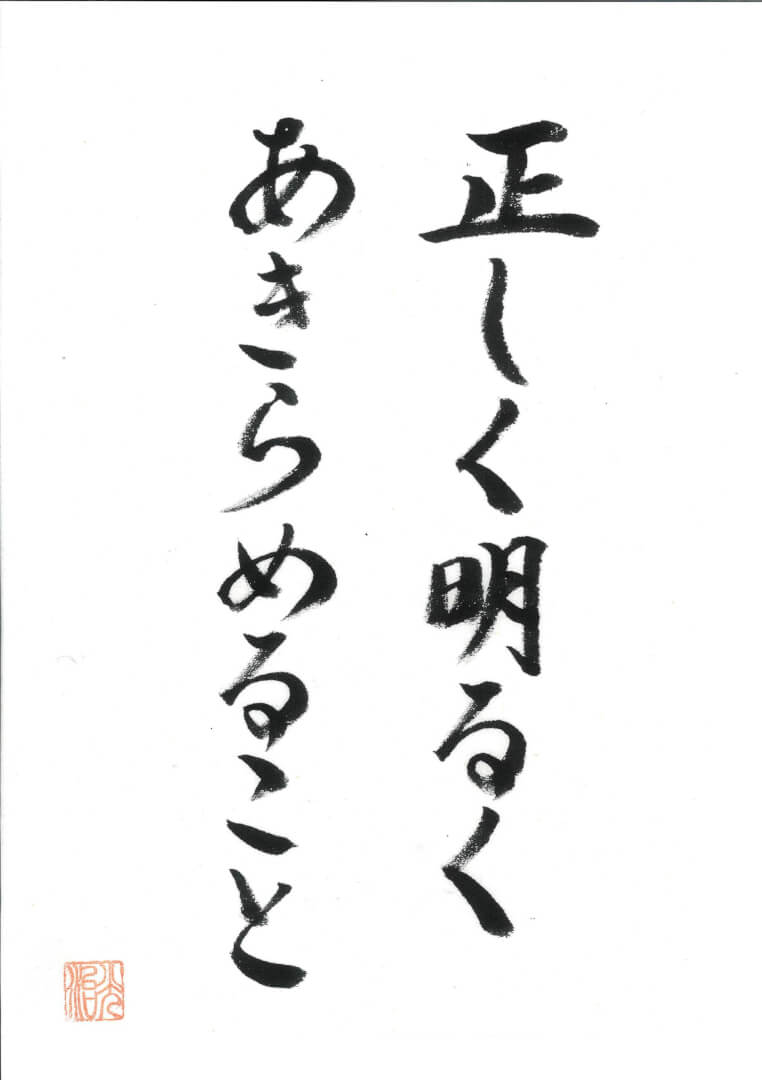 正しく明るく
あきらめること